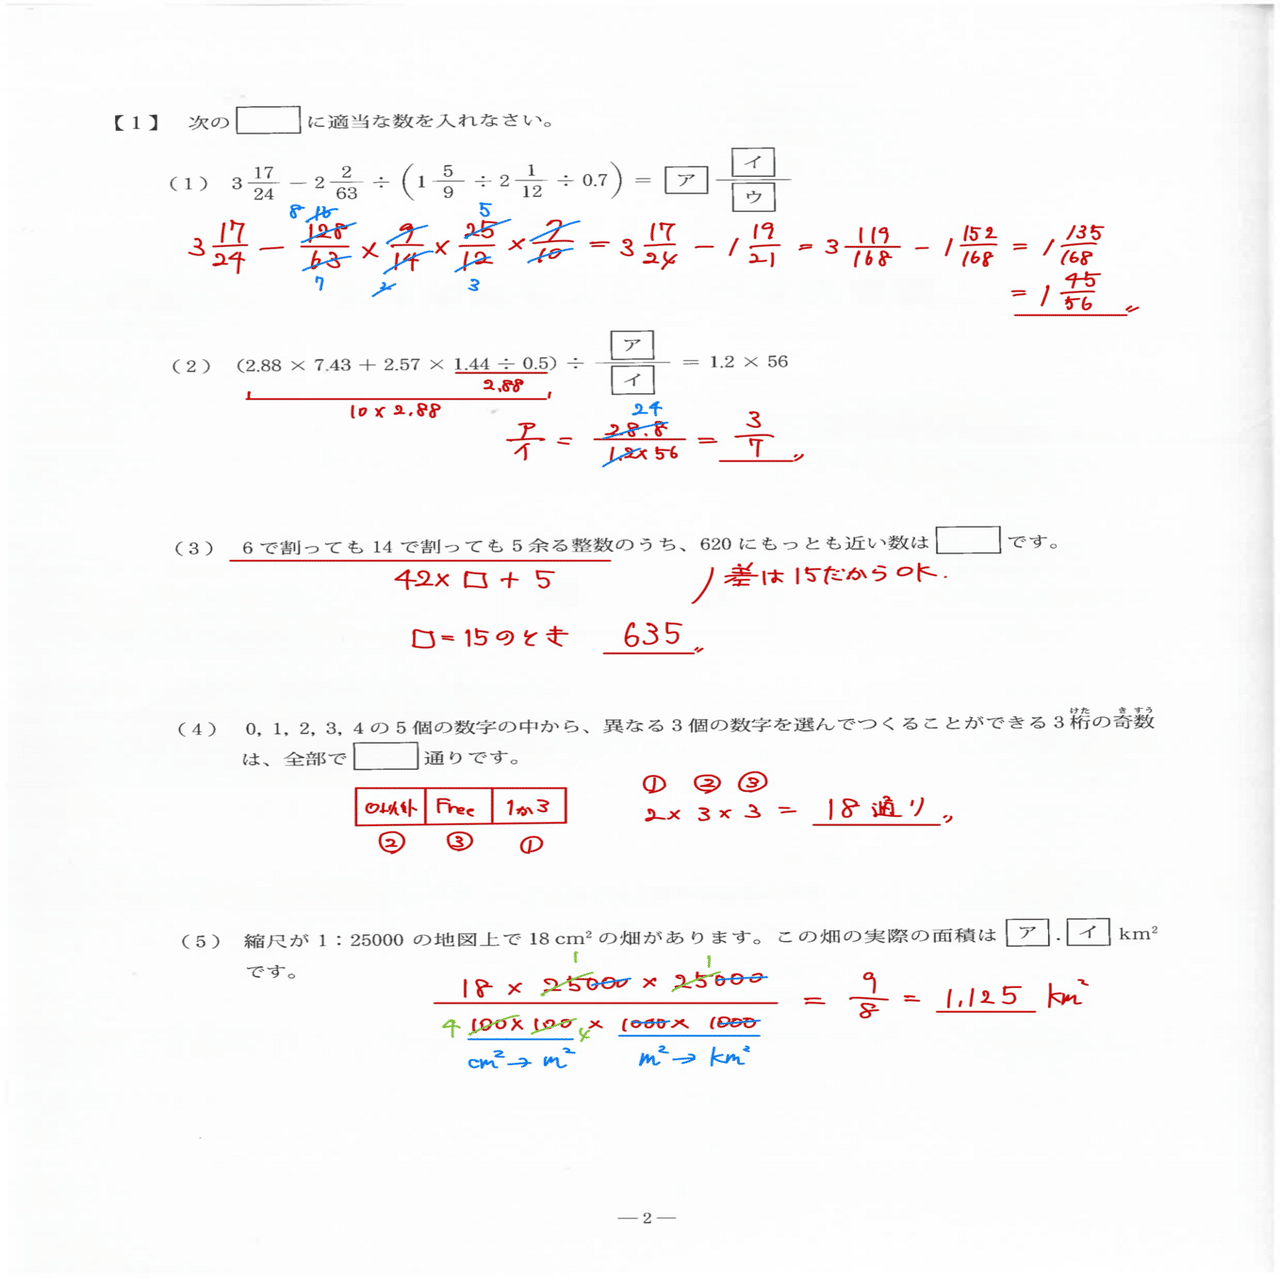 【1】 次の□に適当な数を入れなさい。
(1) 3 17/24 − 2 2/63 ÷ (1 5/9 ÷ 2 1/12 ÷ 0.7) = ア イ/ウ
8 16 5
3 17/24 − 128/63 × 9/14 × 25/12 × 7/10 = 3 17/24 − 1 19/21 = 3 119/168 − 1 152/168 = 1 135/168
7 2 3
= 1 45/56
(2) (2.88 × 7.43 + 2.57 × 1.44 ÷ 0.5) ÷ ア/イ = 1.2 × 56
2.88
10 × 2.88
24
ア/イ = 28.8/1.2×56 = 3/7
(3) 6で割っても14で割っても5余る整数のうち、620にもっとも近い数は□です。
42×□+5 差は15だからOK.
□=15のとき 635
(4) 0, 1, 2, 3, 4の5個の数字の中から、異なる3個の数字を選んでつくることができる3桁の奇数
けた き すう
は、全部で□通りです。
① ② ③
0以外 Free 1か3 2×3×3 = 18通り
② ③ ①
(5) 縮尺が1：25000の地図上で18 cm²の畑があります。この畑の実際の面積はア.イkm²
です。
1 1
18 × 25000 × 25000 / 100×100 × 1000×1000 = 9/8 = 1.125 km²
4 4
cm²→m² m²→km²
— 2 —